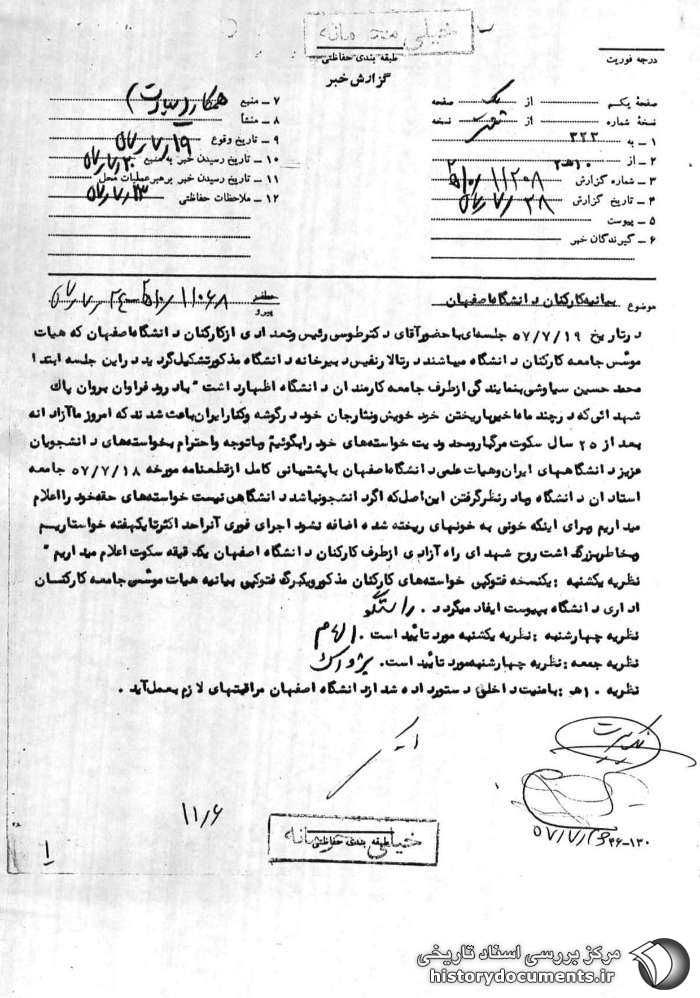 خیلی محرمانه
طبقه بندی حفاظتی
گزارش خبر
درجه فوریت
صفحه یکم از یک صفحه
نسخه شماره از نسخه
۱ ـ به ۳۲۲
۲ ـ از ۱۰ هـ ۲
۳ ـ شماره گزارش ۱۱۲۰۸ / ۱۰ هـ ۲
۴ ـ تاریخ گزارش ۲۸ / ۷ / ۵۷
۵ ـ پیوست
۶ ـ گیرندگان خبر
۷ ـ منبع همکار
۸ ـ منشأ
۹ ـ تاریخ وقوع ۱۹ / ۷ / ۵۷
۱۰ ـ تاریخ رسیدن خبر به منبع ۲۰ / ۷ / ۵۷
۱۱ ـ تاریخ رسیدن خبر برهبر عملیات محل ۲۳ / ۷ / ۵۷
۱۲ ـ ملاحظات حفاظتی
موضوع بیانیه کارکنان دانشگاه اصفهان
پیرو ۱۱۰۶۸ / ۱۰ هـ ۲ ۲۴ / ۷ / ۵۷
در تاریخ ۵۷/۷/۱۹ جلسه‌ای با حضور آقای دکتر طوسی رئیس و تعدادی از کارکنان دانشگاه اصفهان که هیات
موسس جامعه کارکنان دانشگاه میباشند در تالار نفیس دبیرخانه دانشگاه مذکور تشکیل گردید در این جلسه ابتدا
محمد حسین سیاوشی بنمایندگی از طرف جامعه کارمندان دانشگاه اظهار داشت " با درود فراوان بروان پاک
شهدائی که در چند ماه اخیر با ریختن خون خویش و نثار جان خود در گوشه و کنار ایران باعث شدند که امروز ما آزادانه
بعد از ۲۵ سال سکوت مرگبار و محدودیت خواسته‌های خود را بگوئیم و با توجه و احترام بخواسته‌های دانشجویان
عزیز دانشگاههای ایران و هیات علمی دانشگاه اصفهان با پشتیبانی کامل از قطعنامه مورخه ۵۷/۷/۱۸ جامعه
استادان دانشگاه و با در نظر گرفتن این اصل که اگر دانشجو نباشد دانشگاهی نیست خواسته‌های حقه خود را اعلام
میداریم و برای اینکه خونی به خونهای ریخته شده اضافه نشود اجرای فوری آنرا حداکثر تا یکهفته خواستاریم
و بخاطر بزرگداشت روح شهدای راه آزادی از طرف کارکنان دانشگاه اصفهان یک دقیقه سکوت اعلام میداریم "
نظریه یکشنبه : یکنسخه فتوکپی خواسته‌های کارکنان مذکور و یکبرگ فتوکپی بیانیه هیات موسس جامعه کارکنان
اداری دانشگاه بپیوست ایفاد میگردد . راستگو
نظریه چهارشنبه : نظریه یکشنبه مورد تائید است . الهام
نظریه جمعه : نظریه چهارشنبه مورد تائید است . پژواک
نظریه ۱۰ هـ : بامنیت داخلی دستور داده شد از دانشگاه اصفهان مراقبتهای لازم بعمل آید .
۱۱/۶
۵۷/۷/
۴۶-۱۳۰
خیلی محرمانه
طبقه بندی حفاظتی
۱
مرکز بررسی اسناد تاریخی
historydocuments.ir